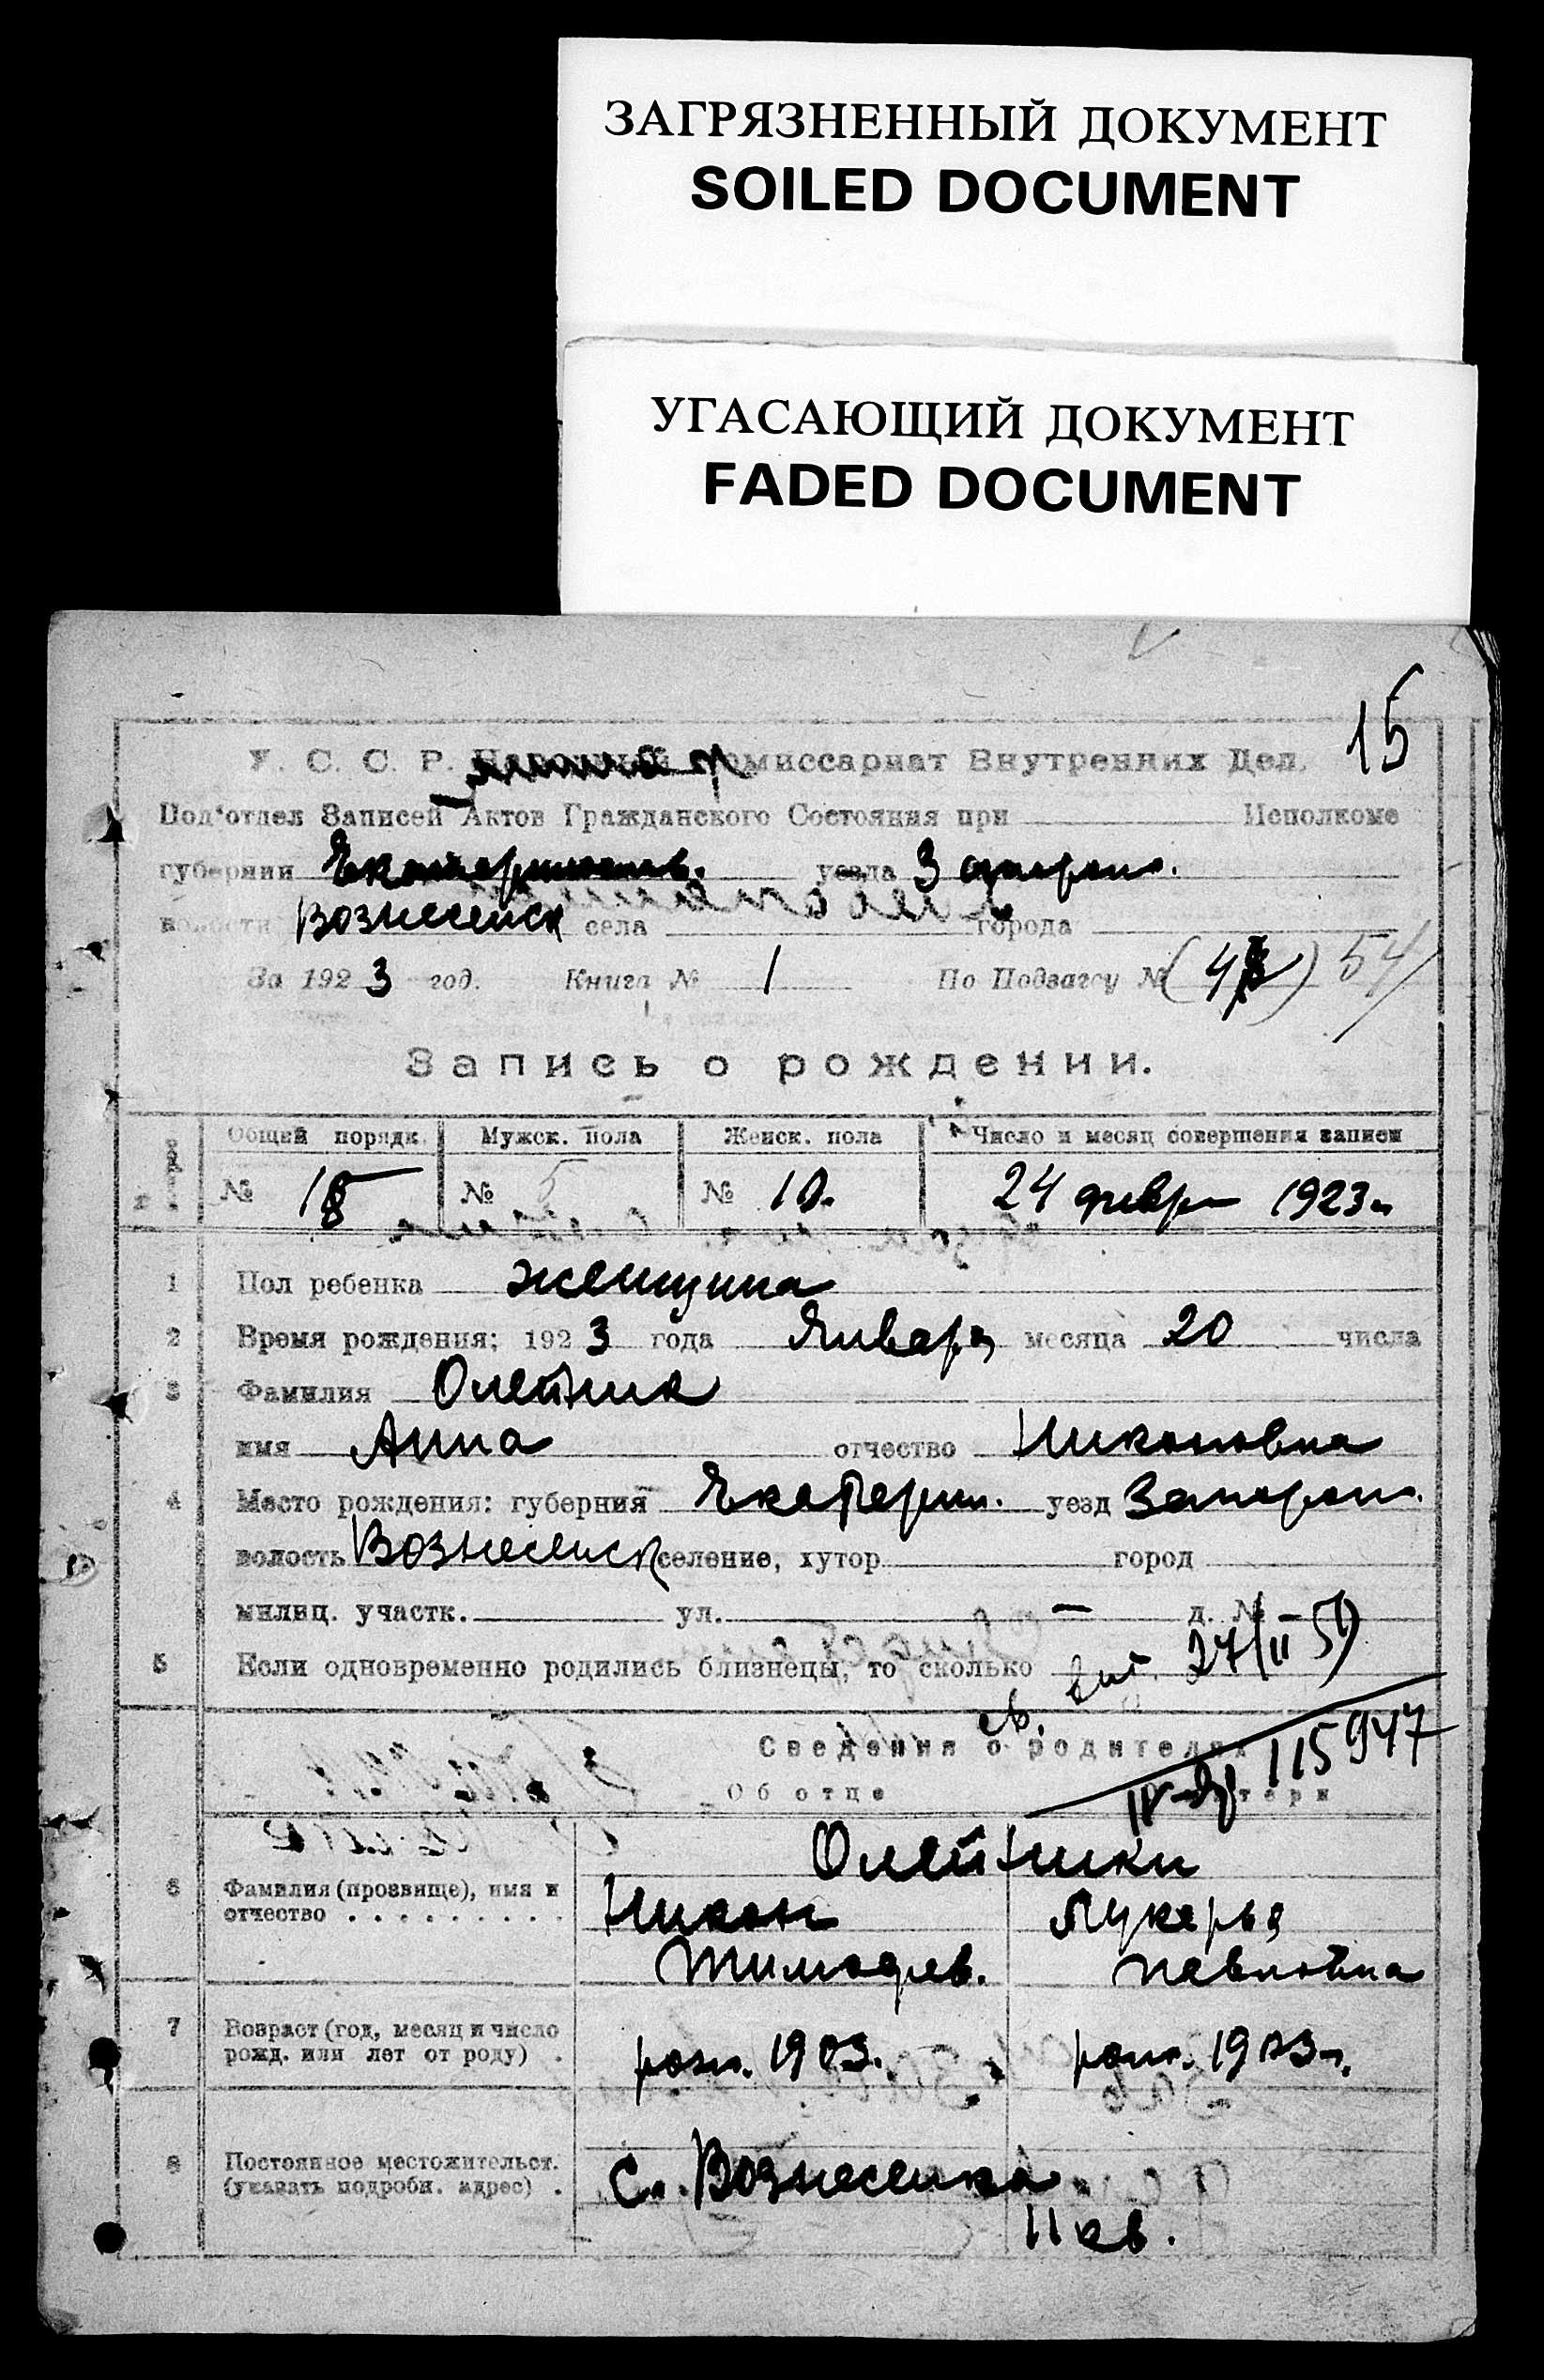 ЗАГРЯЗНЕННЫЙ ДОКУМЕНТ
SOILED DOCUMENT
УГАСАЮЩИЙ ДОКУМЕНТ
FADED DOCUMENT
15
У. С. С. Р. Народный Комиссариат Внутренних Дел.
Под'отдел Записей Актов Гражданского Состояния при Исполкоме
губернии Екатеринослав. уезда Запорож.
волости Вознесенск села города
За 1923 год. Книга № 1 По Подзагсу № 54
Запись о рождении.
Общий порядк. Мужск. пола Женск. пола Число и месяц совершения записи
№ 15 № 5 № 10. 24 февр 1923 г
1 Пол ребенка женщина
2 Время рождения: 1923 года Января месяца 20 числа
3 Фамилия Олейник
имя Анна отчество Никоновна
4 Место рождения: губерния Екатерин. уезд Запорож.
волость Вознесенск селение, хутор город
милиц. участк. ул. — д. №
5 Если одновременно родились близнецы, то сколько
св. 27/II-59
115947
Сведения о родителях
Об отце
Олейники
6 Фамилия (прозвище), имя и отчество Никон Лукерья
Тимофеев. Павловна
7 Возраст (год, месяц и число рожд. или лет от роду) рож. 1903. рож. 1903 г.
8 Постоянное местожительст. (указать подробн. адрес) С. Вознесенка
11 кв.